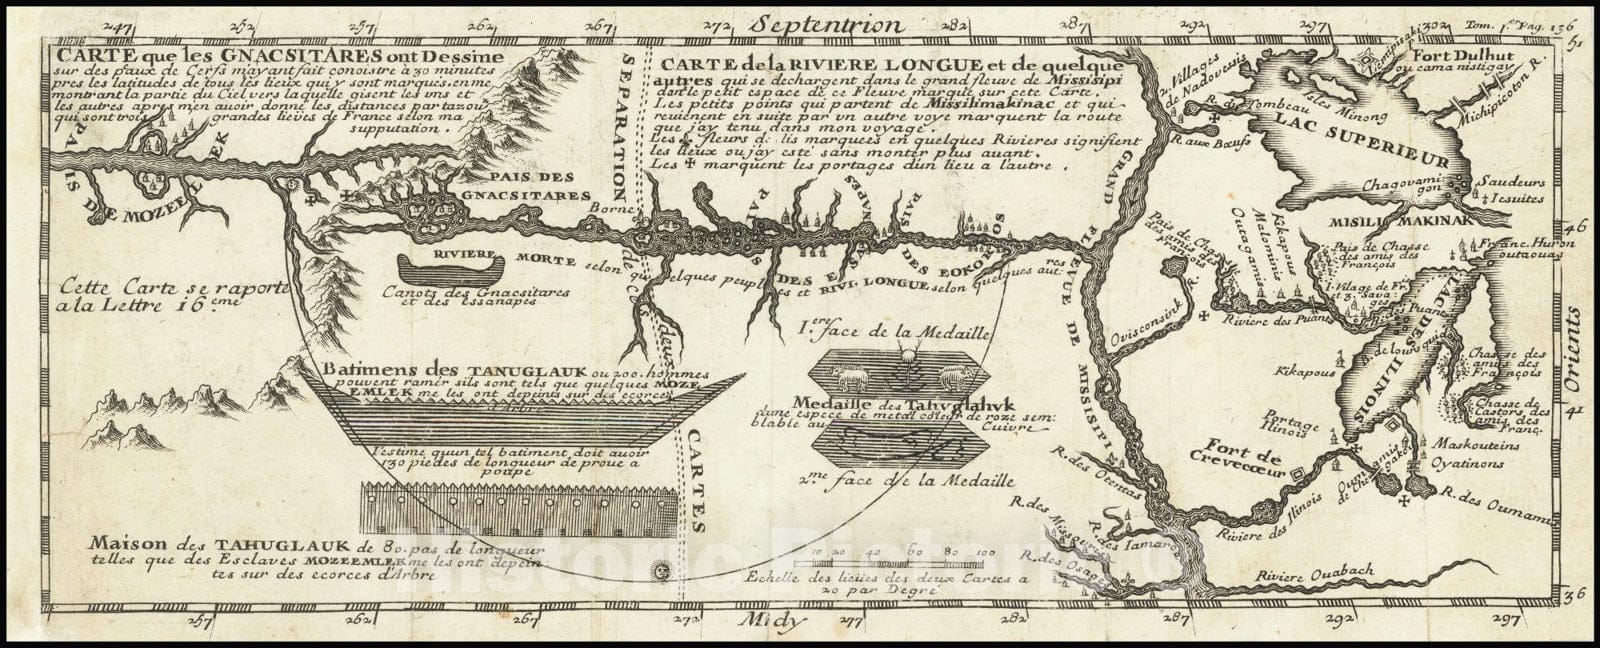 247
262
267
272
Septentrion
282
287
292
297
302
Tom. 1.er Pag. 136
CARTE que les GNACSITARES ont Dessine
sur des paux de Cerfs m'ayant fait conoistre a 30 minutes
pres les latitudes de tous les lieux qui y sont marqués, en me
montrant la partie du Ciel vers laquelle gisent les vns et
les autres apres m'en auoir donné les distances par tazou
qui sont trois grandes lieües de France selon ma
supputation.
SEPARATION de ces deux CARTES
CARTE de la RIVIERE LONGUE et de quelque
autres qui se dechargent dans le grand fleuve de Missisipi
dans le petit espace de ce Fleuve marqué sur cette Carte.
Les petits points qui partent de Missilimakinac et qui
reuienent en suite par vn autre voye marquent la route
que jay tenu dans mon voyage.
Les fleurs d: lis marquées en quelques Rivieres signifient
les lieux ou jay esté sans monter plus auant.
Les ✠ marquent les portages d'un lieu a l'autre.
2. Villages
de Nadovessis
R. du Tombeau
R. aux Bœufs
Isles Minong
LAC SUPERIEUR
Lemipisaki
Fort Dulhut
ou cama nistigay
Michipicoton R.
Chagovami
gon
Saudeurs
Iesuites
MISILI MAKINAK
46
Franc. Huron
outaouas
PAIS DE MOZEEMLEK
PAIS DES
GNACSITARES
Borne
RIVIERE MORTE selon quelques peuples et RIVI. LONGUE selon quelques autres
PAIS DES ESSANAPES
PAIS DES EOKOROS
Canots des Gnacsitares
et des Essanapes
Cette Carte se raporte
a la Lettre 16.eme
GRAND FLEVUE DE MISSISIPI
Pais de Chasse
des amis des
François
Outagamis
Malominis
Kikapous
Pais de Chasse
des amis des
François
1. Vilage de Fr.
et 3. Sava:
ges
Riviere des Puants
B. des Puans
B. de lours qui
LAC DES ILINOIS
Ovisconsink R.
Kikapous
Chasse des
amis des
François
Chasse de
Castors des
amis des
Franç.
Orients
41
Portage
Ilinois
Fort de
Crevecœur
Maskouteins
Oyatinons
R. des Oumamis
Riviere des Ilinois
R. des Otentas
R. des Missouris
R. des Osages
R. des Iamaro
Riviere Ouabach
36
Batimens des TANUGLAUK ou 200. hommes
pouvent ramer sils sont tels que quelques MOZE
EMLEK me les ont depeints sur des ecorces
d'Arbre
J'estime qu'un tel batiment doit auoir
130 piedes de longueur de proue a
poupe
Maison des TAHUGLAUK de 80. pas de longueur
telles que des Esclaves MOZEEMLEK me les ont depein:
tes sur des ecorces d'Arbre
1.ere face de la Medaille
Medaille des Tahuglahuk
d'une espece de metal coleur de roze sem:
blable au Cuivre
2.me face de la Medaille
10 20 40 60 80 100
Echelle des lieües des deux Cartes a
20 par Degré
257
262
267
272
Midy
277
282
287
292
297
Historic Pictoric